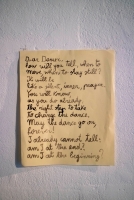 Dear Dancer,
how will you tell, when to
move, when to stay still?
It will be
like a silent, inner, prayer.
You will know
as you do already
the right step to take
to change the dance.
May the dance go on,
forever!
I already cannot tell:
am I at the end?
am I at the beginning?